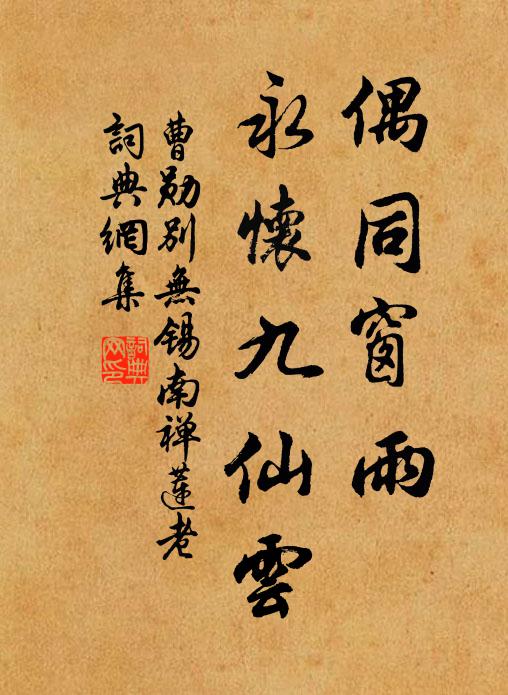 偶同窗雨
永懷九仙雲
曹勛別無錫南禅蓮老
詞典網集
詞典
网印